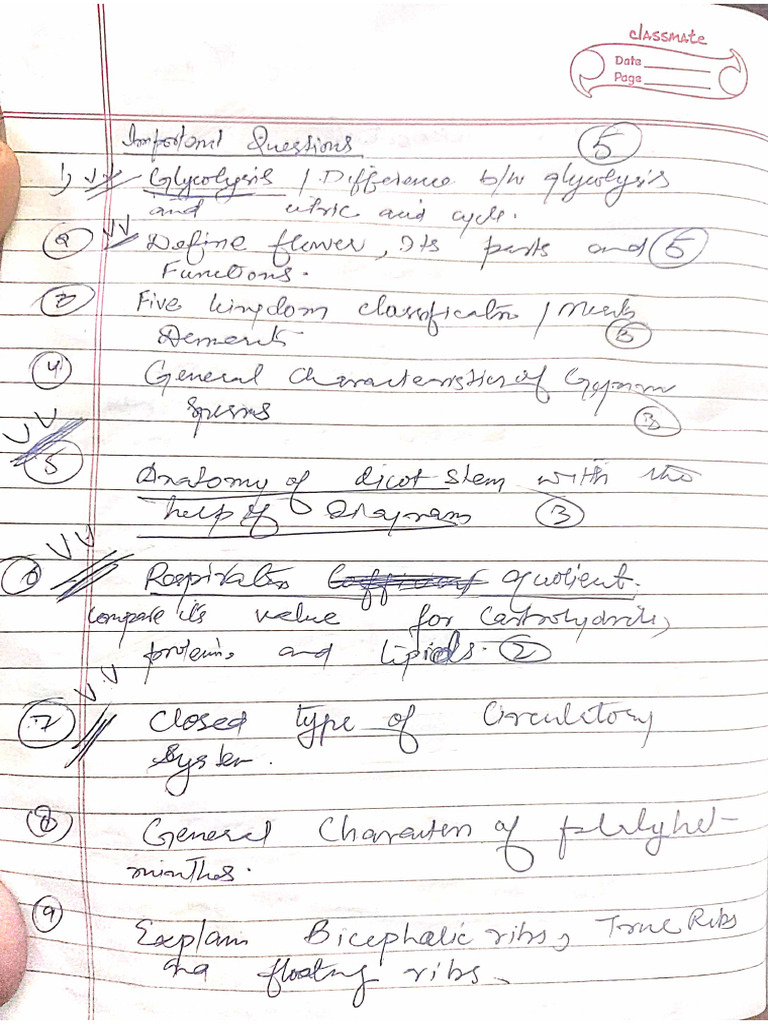 classmate
Date
Page
Important Questions 5
1, VV Glycolysis / Difference b/w glycolysis
and citric acid cycle.
2 VV Define flower, Its parts and 5
Functions.
3 Five kingdom classification / Merits
Demerits 5
4 General Characteristics of Gymno
sperms 3
VV
5 Anatomy of dicot stem with the
help of Diagram 3
VV
6 Respiration quotient.
compare its value for Carbohydrates,
proteins and lipids. 2
VV
7 Closed type of Circulatory
System.
8 General Characters of platyhel-
minthes.
9 Explain Bicephalic ribs, True Ribs
and floating ribs.